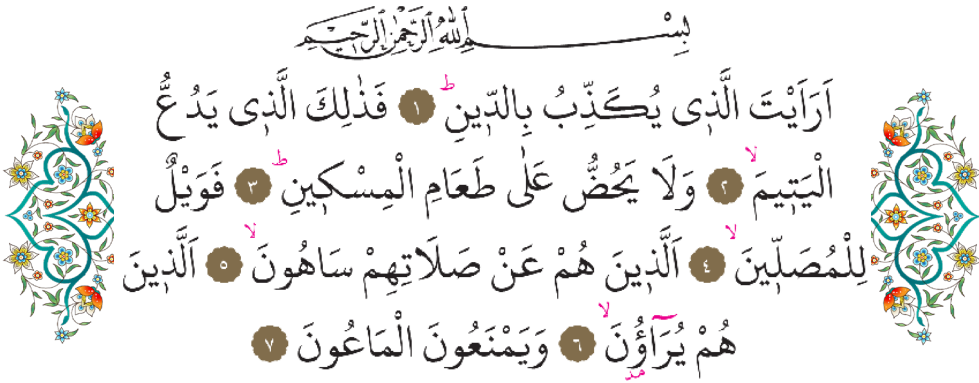 بِسْمِ اللّٰهِ الرَّحْمٰنِ الرَّحٖيمِ
اَرَاَيْتَ الَّذٖى يُكَذِّبُ بِالدّٖينِؕ ﴿١﴾ فَذٰلِكَ الَّذٖى يَدُعُّ
الْيَتٖيمَۙ ﴿٢﴾ وَلَا يَحُضُّ عَلٰى طَعَامِ الْمِسْكٖينِؕ ﴿٣﴾ فَوَيْلٌ
لِلْمُصَلّٖينَۙ ﴿٤﴾ اَلَّذٖينَ هُمْ عَنْ صَلَاتِهِمْ سَاهُونَۙ ﴿٥﴾ اَلَّذٖينَ
هُمْ يُرَٓاؤُ۫نَۙ ﴿٦﴾ وَيَمْنَعُونَ الْمَاعُونَ ﴿٧﴾
مد